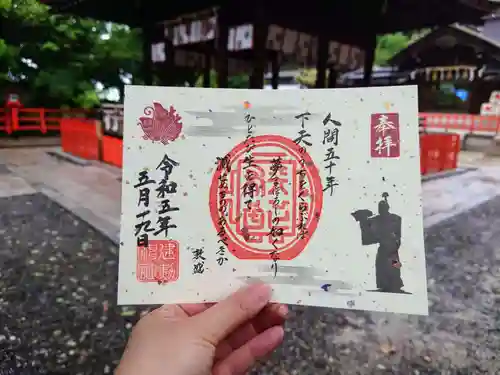 奉拝
人間五十年
下天のうちをくらぶれば
夢まぼろしの如くなり
ひとたび生を得て
滅せぬ者のあるべきか
敦盛
令和五年
五月十九日
建勲神社